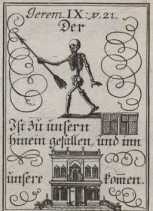 Jerem IX: v. 21.
Der
Ist zu unsern
hinein gefallen, und inn
unsere komen.